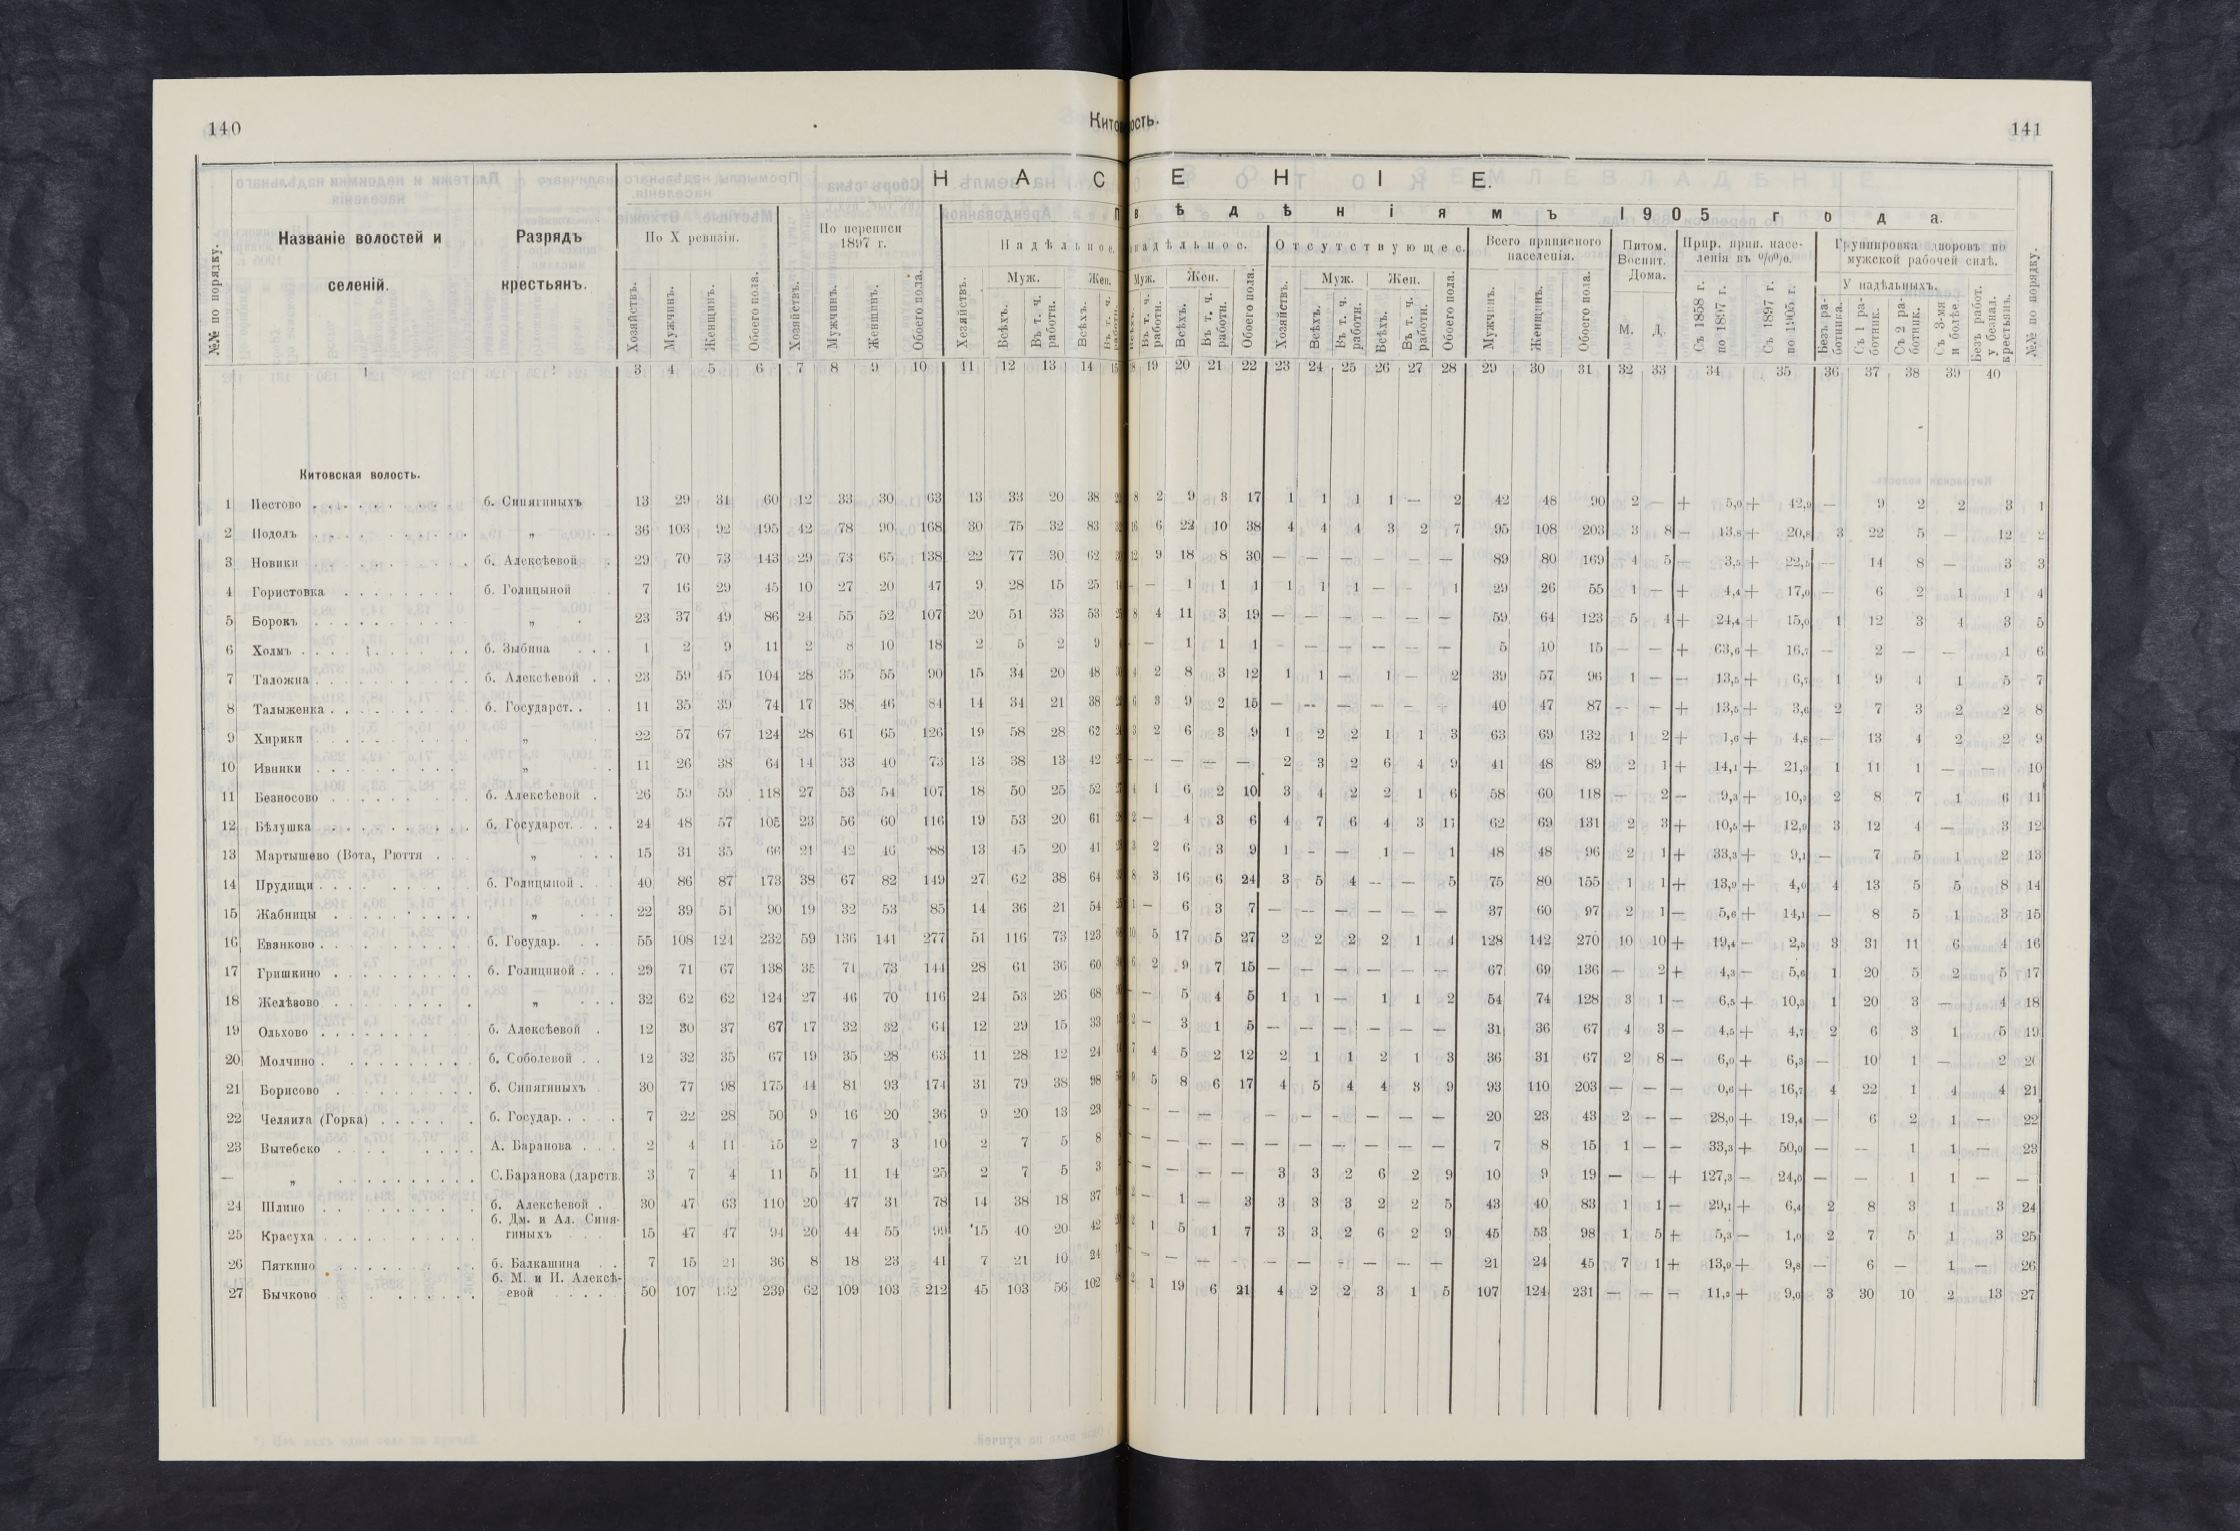 140
Китовость.
141
НАСЕНІЕ.
вѣдѣніямъ 1905 года.
№№ по порядку.
Названіе волостей и
селеній.
Разрядъ
крестьянъ.
По X ревизіи.
По переписи
1897 г.
Надѣльное.
надѣльное.
Отсутствующее.
Всего приписного
населенія.
Питом.
Воспит.
Дома.
Прир. прип. насе-
ленія въ %%.
Группировка дворовъ по
мужской рабочей силѣ.
У надѣльныхъ.
Муж. Жен. Муж. Жен. Муж. Жен.
Хозяйствъ. Мужчинъ. Женщинъ. Обоего пола. Хозяйствъ. Мужчинъ. Женщинъ. Обоего пола. Хозяйствъ. Всѣхъ. Въ т. ч. работн. Всѣхъ.
Въ т. ч. работн. Всѣхъ. Въ т. ч. работн. Обоего пола. Хозяйствъ. Всѣхъ. Въ т. ч. работн. Всѣхъ. Въ т. ч. работн. Обоего пола. Мужчинъ. Женщинъ. Обоего пола. М. Д. Съ 1858 г. по 1897 г. Съ 1897 г. по 1905 г. Безъ ра- ботника. Съ 1 ра- ботник. Съ 2 ра- ботник. Съ 3-мя и болѣе. Безъ работ. у безнал. крестьянъ. №№ по порядку.
1 2 3 4 5 6 7 8 9 10 11 12 13 14 15 18 19 20 21 22 23 24 25 26 27 28 29 30 31 32 33 34 35 36 37 38 39 40
Китовская волость.
1 Пестово б. Синягиныхъ 13 29 31 60 12 33 30 63 13 33 20 38 8 2 9 3 17 1 1 1 1 — 2 42 48 90 2 — + 5,0 + 42,9 — 9 2 2 3 1
2 Подолъ „ 36 103 92 195 42 78 90 168 30 75 32 83 16 6 22 10 38 4 4 4 3 2 7 95 108 203 3 8 — 13,8 + 20,8 3 22 5 — 12 2
3 Новики б. Алексѣевой 29 70 73 143 29 73 65 138 22 77 30 62 12 9 18 8 30 — — — — — — 89 80 169 4 5 — 3,5 + 22,5 — 14 8 — 3 3
4 Гористовка б. Голицыной 7 16 29 45 10 27 20 47 9 28 15 25 — — 1 1 1 1 1 1 — — 1 29 26 55 1 — + 4,4 + 17,0 — 6 2 1 1 4
5 Борокъ „ 23 37 49 86 24 55 52 107 20 51 33 53 8 4 11 3 19 — — — — — — 59 64 123 5 4 + 24,4 + 15,0 1 12 3 4 3 5
6 Холмъ б. Зыбина 1 2 9 11 2 8 10 18 2 5 2 9 — 1 1 1 — — — — — — 5 10 15 — — + 63,6 + 16,7 — 2 — — 1 6
7 Таложна б. Алексѣевой 23 59 45 104 28 35 55 90 15 34 20 48 4 2 8 3 12 1 1 — 1 — 2 39 57 96 1 — — 13,5 + 6,7 1 9 4 1 5 7
8 Талыженка б. Государст. 11 35 39 74 17 38 46 84 14 34 21 38 6 3 9 2 15 — — — — — — 40 47 87 — — + 13,5 + 3,6 2 7 3 2 2 8
9 Хирики „ 22 57 67 124 28 61 65 126 19 58 28 62 3 2 6 3 9 1 2 2 1 1 3 63 69 132 1 2 + 1,6 + 4,8 — 13 4 2 2 9
10 Ивники „ 11 26 38 64 14 33 40 73 13 38 13 42 — — — — — 2 3 2 6 4 9 41 48 89 2 1 + 14,1 + 21,9 1 11 1 — — 10
11 Безносово б. Алексѣевой 26 59 59 118 27 53 54 107 18 50 25 52 4 1 6 2 10 3 4 2 2 1 6 58 60 118 — 2 — 9,3 + 10,3 2 8 7 1 6 11
12 Бѣлушка б. Государст. 24 48 57 105 23 56 60 116 19 53 20 61 2 — 4 3 6 4 7 6 4 3 11 62 69 131 2 3 + 10,5 + 12,9 3 12 4 — 3 12
13 Мартышево (Вота, Рютти „ 15 31 35 66 21 42 46 88 13 45 20 41 3 2 6 3 9 1 — — 1 — 1 48 48 96 2 1 + 33,3 + 9,1 — 7 5 1 2 13
14 Прудищи б. Голицыной 40 86 87 173 38 67 82 149 27 62 38 64 8 3 16 6 24 3 5 4 — — 5 75 80 155 1 1 + 13,9 + 4,0 4 13 5 5 8 14
15 Жабницы „ 22 39 51 90 19 32 53 85 14 36 21 54 1 — 6 3 7 — — — — — — 37 60 97 2 1 — 5,6 + 14,1 — 8 5 1 3 15
16 Еванково б. Государ. 55 108 124 232 59 136 141 277 51 116 73 123 10 5 17 5 27 2 2 2 2 1 4 128 142 270 10 10 + 19,4 — 2,5 3 31 11 6 4 16
17 Гришкино б. Голициной 29 71 67 138 35 71 73 144 28 61 36 60 6 2 9 7 15 — — — — — — 67 69 136 — 2 + 4,3 — 5,6 1 20 5 2 5 17
18 Желѣзово „ 32 62 62 124 27 46 70 116 24 53 26 68 — — 5 4 5 1 1 — 1 1 2 54 74 128 3 1 — 6,5 + 10,3 1 20 3 — 4 18
19 Ольхово б. Алексѣевой 12 30 37 67 17 32 32 64 12 29 15 33 2 — 3 1 5 — — — — — — 31 36 67 4 3 — 4,5 + 4,7 2 6 3 1 5 19
20 Молчино б. Соболевой 12 32 35 67 19 35 28 63 11 28 12 24 7 4 5 2 12 2 1 1 2 1 3 36 31 67 2 8 — 6,0 + 6,3 — 10 1 — 2 20
21 Борисово б. Синягиныхъ 30 77 98 175 44 81 93 174 31 79 38 98 9 5 8 6 17 4 5 4 4 3 9 93 110 203 — — — 0,6 + 16,7 4 22 1 4 4 21
22 Челяиха (Горка) б. Государ. 7 22 28 50 9 16 20 36 9 20 13 23 — — — — — — — — — — 20 23 43 2 — — 28,0 + 19,4 — 6 2 1 — 22
23 Вытебско А. Баранова 2 4 11 15 2 7 3 10 2 7 5 8 — — — — — — — — — — 7 8 15 1 — — 33,3 + 50,0 — — 1 1 — 23
— „ С. Баранова (дарств. 3 7 4 11 5 11 14 25 2 7 5 3 — — — — 3 3 2 6 2 9 10 9 19 — — + 127,3 — 24,0 — — 1 1 — —
24 Шлино б. Алексѣевой 30 47 63 110 20 47 31 78 14 38 18 37 2 — 1 — 3 3 3 3 2 2 5 43 40 83 1 1 — 29,1 + 6,4 2 8 3 1 3 24
б. Дм. и Ал. Синя-
25 Красуха гиныхъ 15 47 47 94 20 44 55 99 15 40 20 42 2 1 5 1 7 3 3 2 6 2 9 45 53 98 1 5 + 5,3 — 1,0 2 7 5 1 3 25
26 Пяткино б. Балкашина 7 15 21 36 8 18 23 41 7 21 10 24 — — — — — — — — — — 21 24 45 7 1 + 13,9 + 9,8 — 6 — 1 — 26
б. М. и И. Алексѣ-
27 Бычково евой 50 107 132 239 62 109 103 212 45 103 56 102 2 1 19 6 21 4 2 2 3 1 5 107 124 231 — — — 11,3 + 9,0 3 30 10 2 13 27